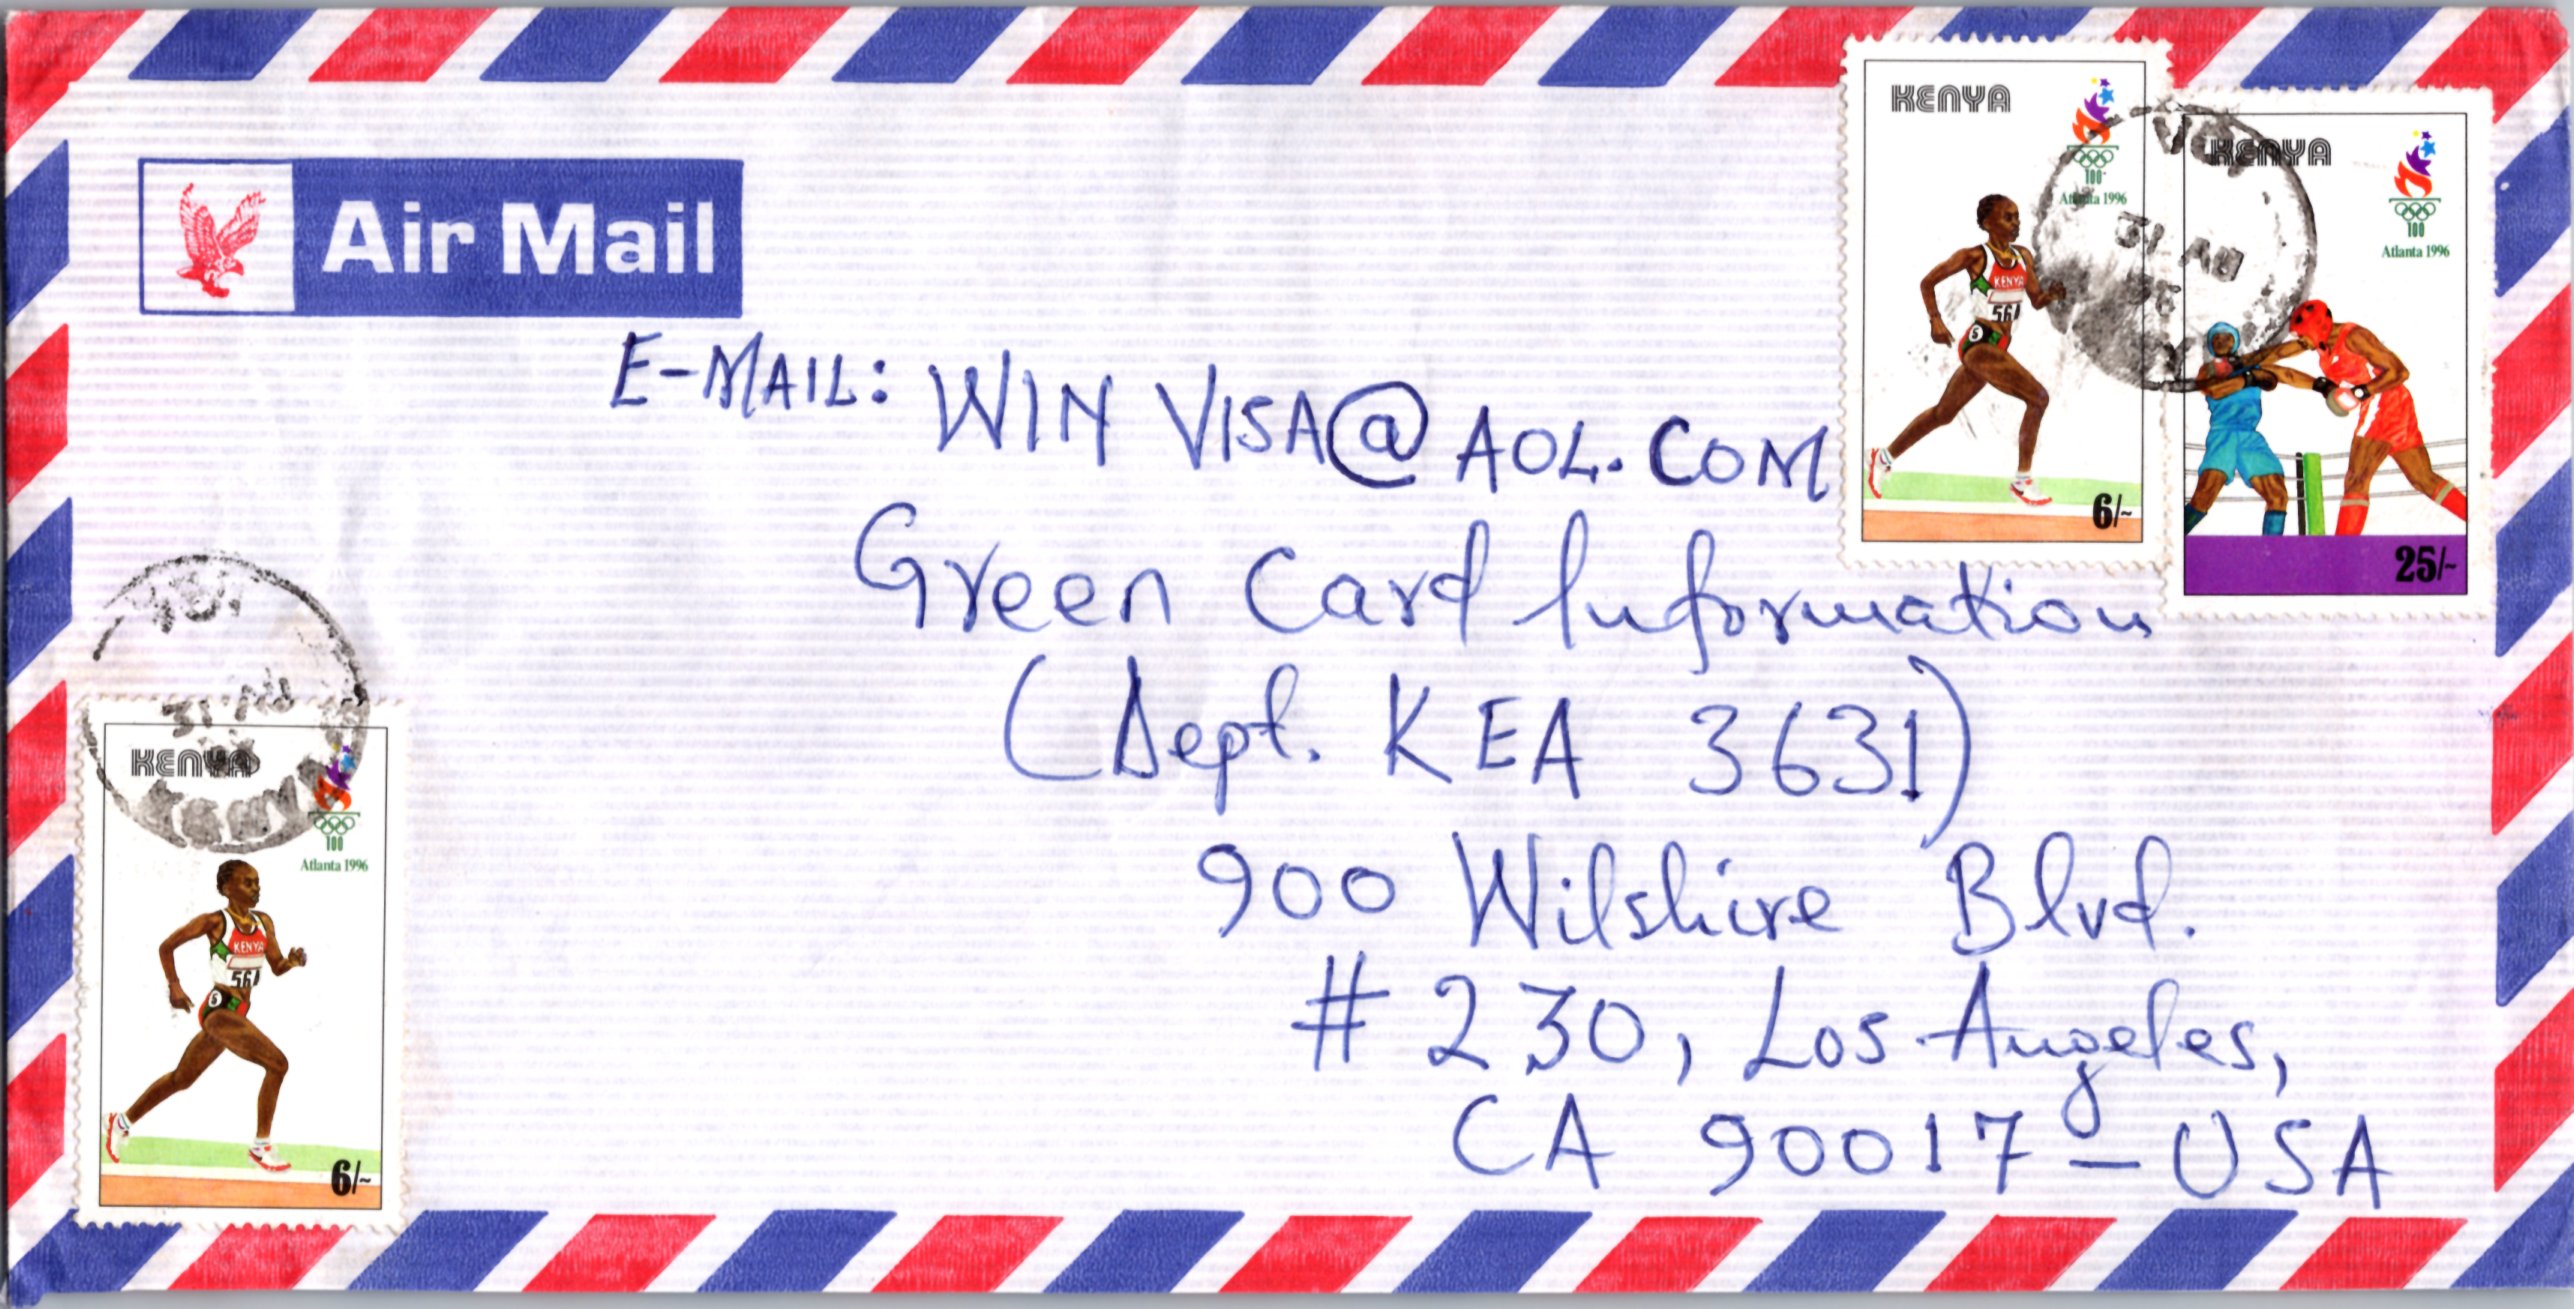 Air Mail
E-MAIL: WIN VISA@AOL.COM
Green Card Information
(Dept. KEA 3631)
900 Wilshire Blvd.
# 230, Los Angeles,
CA 90017 - USA
KENYA
100
Atlanta 1996
KENYA
561
5
6/-
KENYA
100
Atlanta 1996
25/-
31 AU
96
31 AU
KENYA
100
Atlanta 1996
KENYA
561
5
6/-